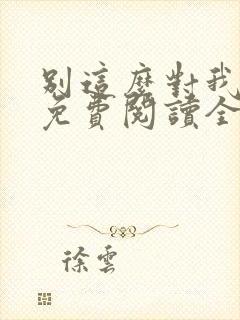 別這麼對我
免費閱讀全
徐雲